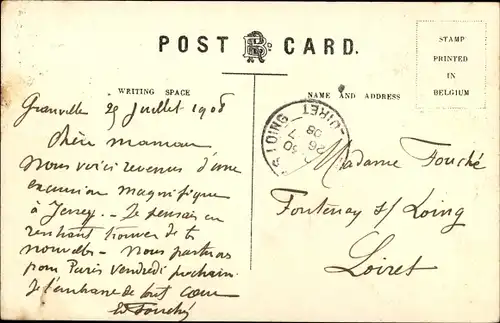 POST CARD.
STAMP
PRINTED
IN
BELGIUM
WRITING SPACE
NAME AND ADDRESS
Granville 25 Juillet 1908
Chère maman
Nous voici revenus d'une
excursion magnifique
à Jersey. Je pensais en
rentrant trouver de tes
nouvelles. Nous partons
pour Paris vendredi prochain
Je t'embrasse de tout cœur
Ed Fouché
LOING LOIRET
30
26 7
08
Madame Fouché
Fontenay s/ Loing
Loiret